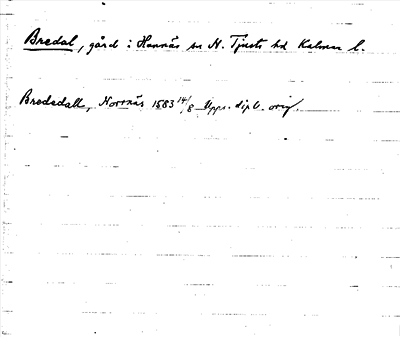 Bredal, gård i Hannäs sn N. Tjusts hd Kalmar l.
Bredsdall, Norrnäs 1583 14/8 Upps. dipl. orig.